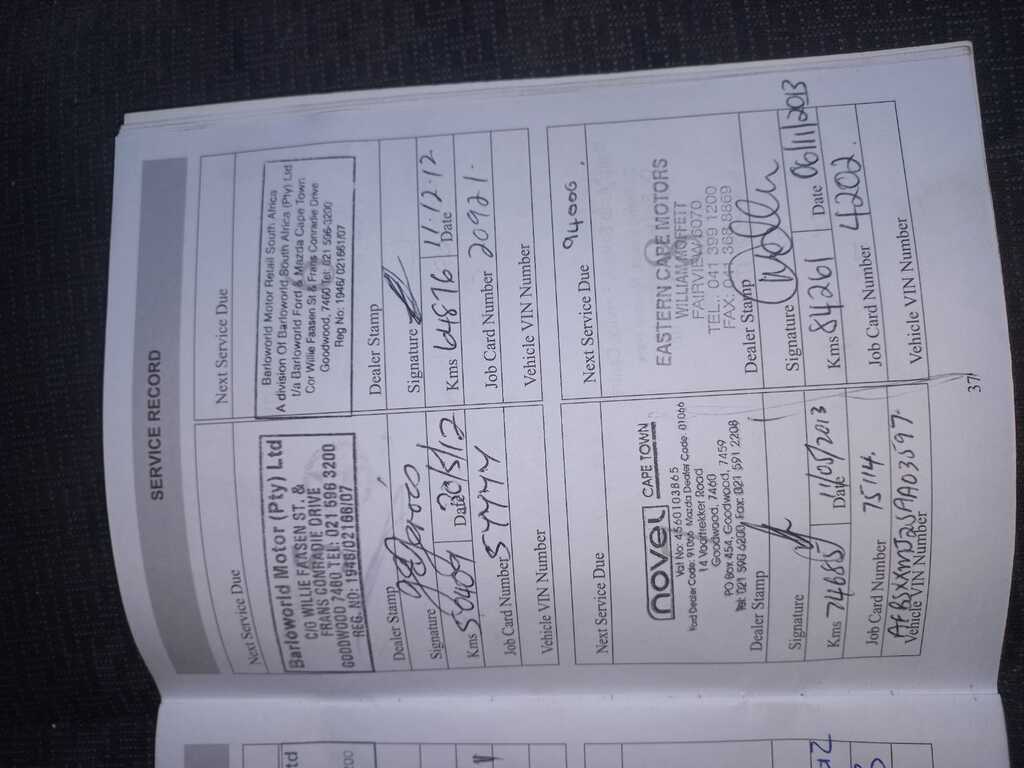 SERVICE RECORD
Next Service Due
Barloworld Motor (Pty) Ltd
C/O WILLIE FAASEN ST. &
FRANS CONRADIE DRIVE
GOODWOOD 7460 TEL: 021 596 3200
REG. NO: 1946/021661/07
Dealer Stamp
Signature
Kms 50409 Date 20/5/12
Job Card Number 57774
Vehicle VIN Number
Next Service Due
Barloworld Motor Retail South Africa
A division Of Barloworld South Africa (Pty) Ltd
t/a Barloworld Ford & Mazda Cape Town
Cor Willie Faasen St & Frans Conradie Drive
Goodwood, 7460 Tel: 021 596-3200
Reg No: 1946/021661/07
Dealer Stamp
Signature
Kms 64876 Date 11.12.12
Job Card Number 20921.
Vehicle VIN Number
Next Service Due
novel CAPE TOWN
Vat No: 4560103865
Ford Dealer Code: 91066 Mazda Dealer Code: 01066
14 Voortrekker Road
Goodwood, 7460
PO Box 454, Goodwood, 7459
Tel: 021 590 6200 Fax: 021 591 2208
Dealer Stamp
Signature
Kms 74685 Date 11/05/2013
Job Card Number 75114.
AFBSXXMJ2JAA03597.
Vehicle VIN Number
Next Service Due 94006
EASTERN CAPE MOTORS
WILLIAM MOFFETT
FAIRVIEW 6070
TEL: 041 399 1200
FAX: 041 368 8869
Dealer Stamp
Signature
Kms 84261 Date 06/11/2013
Job Card Number 4202.
Vehicle VIN Number
37